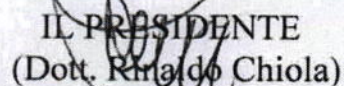 IL PRESIDENTE
(Dott. Rinaldo Chiola)